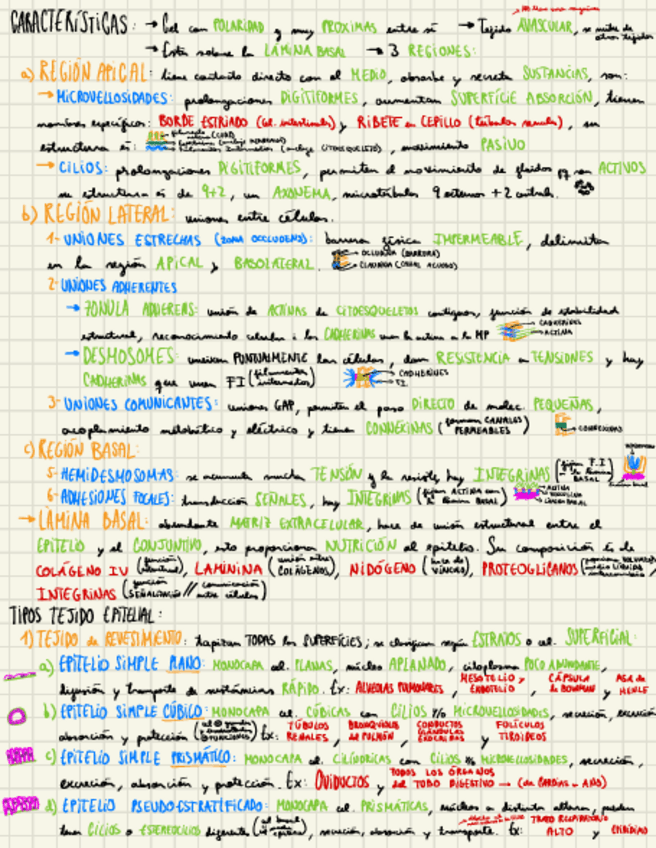 CARACTERÍSTICAS: → Cel con POLARIDAD y muy PROXIMAS entre sí → Tejido AVASCULAR, se nutre de otros tejidos
→ Están sobre la LÁMINA BASAL → 3 REGIONES:
a) REGIÓN APICAL: tiene contacto directo con el MEDIO, absorbe y secreta SUSTANCIAS, son:
→ MICROVELLOSIDADES: prolongaciones DIGITIFORMES, aumentan SUPERFÍCIE ABSORCIÓN, tienen
nombres específicos: BORDE ESTRIADO (cel. intestinales) y RIBETE en CEPILLO (túbulos renales), su
estructura es: movimiento PASIVO
→ CILIOS: prolongaciones DIGITIFORMES, permiten el movimiento de fluidos pq son ACTIVOS
su estructura es de 9+2, un AXONEMA, microtúbulos 9 externos + 2 centrals.
b) REGIÓN LATERAL: uniones entre células.
1- UNIONES ESTRECHAS (ZONA OCCLUDENS): barrera física IMPERMEABLE, delimitan
en la región APICAL y BASOLATERAL. OCLUDINA (BARRERA)
CLAUDINA (CANAL ACUOSO)
2- UNIONES ADHERENTES
→ ZONULA ADHERENS: unión de ACTINAS de CITOESQUELETOS contiguos, función de estabilidad
estructural, reconocimiento celular i las CADHERINAS unen la actina a la MP CADHERINAS
ACTINA
→ DESMOSOMES: unen PUNTUALMENTE las células, dan RESISTENCIA a TENSIONES y hay
CADHERINAS que unen FI (filamentos intermedios) CADHERINES
F.I.
3- UNIONES COMUNICANTES: uniones GAP, permiten el paso DIRECTO de molec. PEQUEÑAS,
acoplamiento metabólico y eléctrico y tienen CONNEXINAS (forman CANALES PERMEABLES) CONNEXINAS
c) REGIÓN BASAL:
5- HEMIDESMOSOMAS: se acumula mucha TENSÓN y la resiste, hay INTEGRINAS (fijan F.I. a Lámina BASAL)
6- ADHESIONES FOCALES: transducción SEÑALES, hay INTEGRINAS (fijan ACTINA con lámina BASAL) ACTINA
→ LÁMINA BASAL: abundante MATRIZ EXTRACELULAR, hace de unión estructural entre el
EPITELIO y el CONJUNTIVO, esto proporciona NUTRICIÓN al epitelio. Su composición es de
COLÁGENO IV (función estructural), LAMININA (unión entre COLÁGENOS), NIDÓGENO (hace de VÍNCULO), PROTEOGLICANOS
INTEGRINAS (función SEÑALIZACIÓN // comunicación entre células)
TIPOS TEJIDO EPITELIAL:
1) TEJIDO de REVESTIMIENTO: tapizan TODAS las SUPERFICIES; se clasifican según ESTRATOS o cel. SUPERFICIAL:
a) EPITELIO SIMPLE PLANO: MONOCAPA cel. PLANAS, núcleo APLANADO, citoplasma POCO ABUNDANTE,
difusión y transporte de sustancias RÁPIDO. Ex: ALVEOLOS PULMONARES, MESOTELIO y ENDOTELIO, CÁPSULA de BOWMAN y ASA de HENLE
b) EPITELIO SIMPLE CÚBICO: MONOCAPA cel. CÚBICAS con CILIOS y/o MICROVELLOSIDADES, secreción, excreción
absorción y protección. Ex: TÚBULOS RENALES, BRONQUIOLOS de PULMÓN, CONDUCTOS GLÁNDULAS EXOCRINAS y FOLÍCULOS TIROIDEOS
c) EPITELIO SIMPLE PRISMÁTICO: MONOCAPA cel. CILÍNDRICAS con CILIOS y/o MICROVELLOSIDADES, secreción,
excreción, absorción y protección. Ex: OVIDUCTOS y TODOS LOS ÓRGANOS del TUBO DIGESTIVO → (de CARDIAS a ANO)
d) EPITELIO PSEUDO-ESTRATIFICADO: MONOCAPA cel. PRISMÁTICAS, núcleos a distinta altura, pueden
tener CILIOS o ESTEREOCILIOS, secreción, absorción y transporte. Ex: TRATO RESPIRATORIO ALTO y EPIDÍDIMO